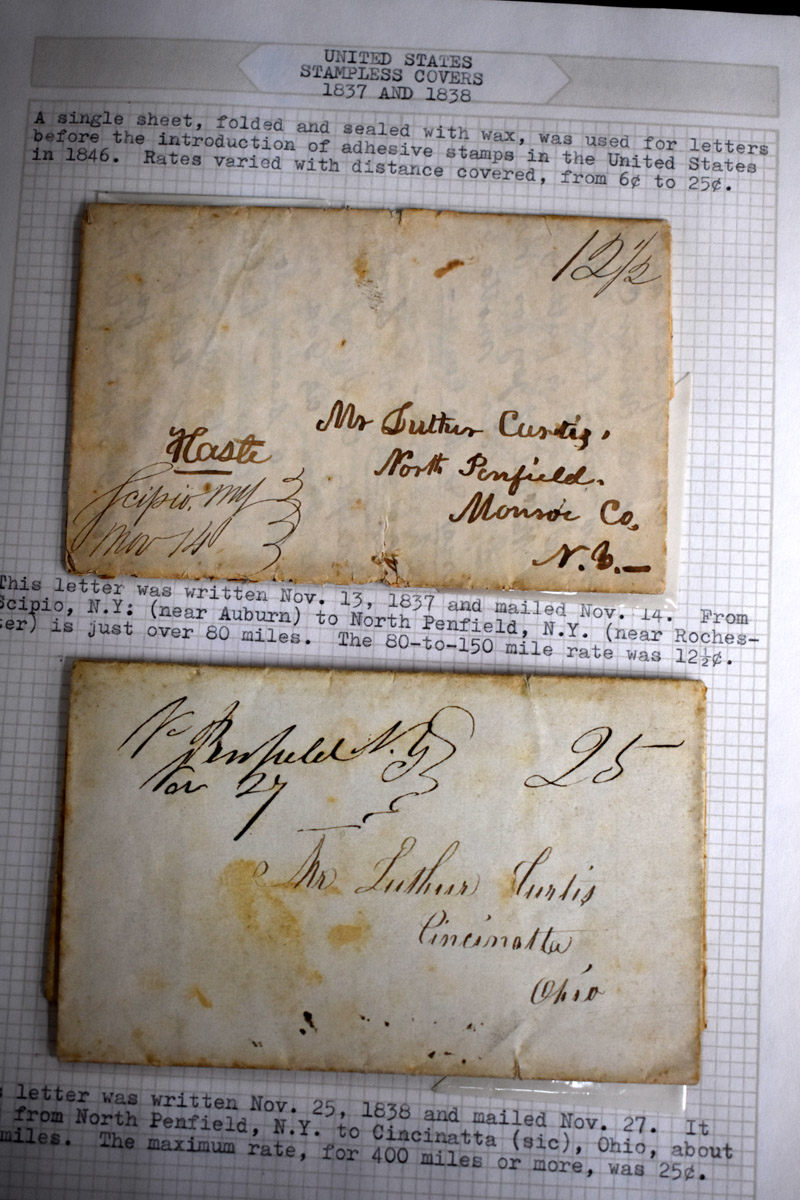 UNITED STATES
STAMPLESS COVERS
1837 AND 1838
A single sheet, folded and sealed with wax, was used for letters
before the introduction of adhesive stamps in the United States
in 1846. Rates varied with distance covered, from 6¢ to 25¢.
12 1/2
Mr Luther Curtis,
Haste
North Penfield.
Scipio. NY
Monroe Co,
Nov 14
N.Y.—
This letter was written Nov. 13, 1837 and mailed Nov. 14. From
Scipio, N.Y: (near Auburn) to North Penfield, N.Y. (near Roches-
ter) is just over 80 miles. The 80-to-150 mile rate was 12½¢.
Penfield N.Y
25
27
Mr Luther Curtis
Cincinatta
Ohio
letter was written Nov. 25, 1838 and mailed Nov. 27. It
from North Penfield, N.Y. to Cincinatta (sic), Ohio, about
miles. The maximum rate, for 400 miles or more, was 25¢.